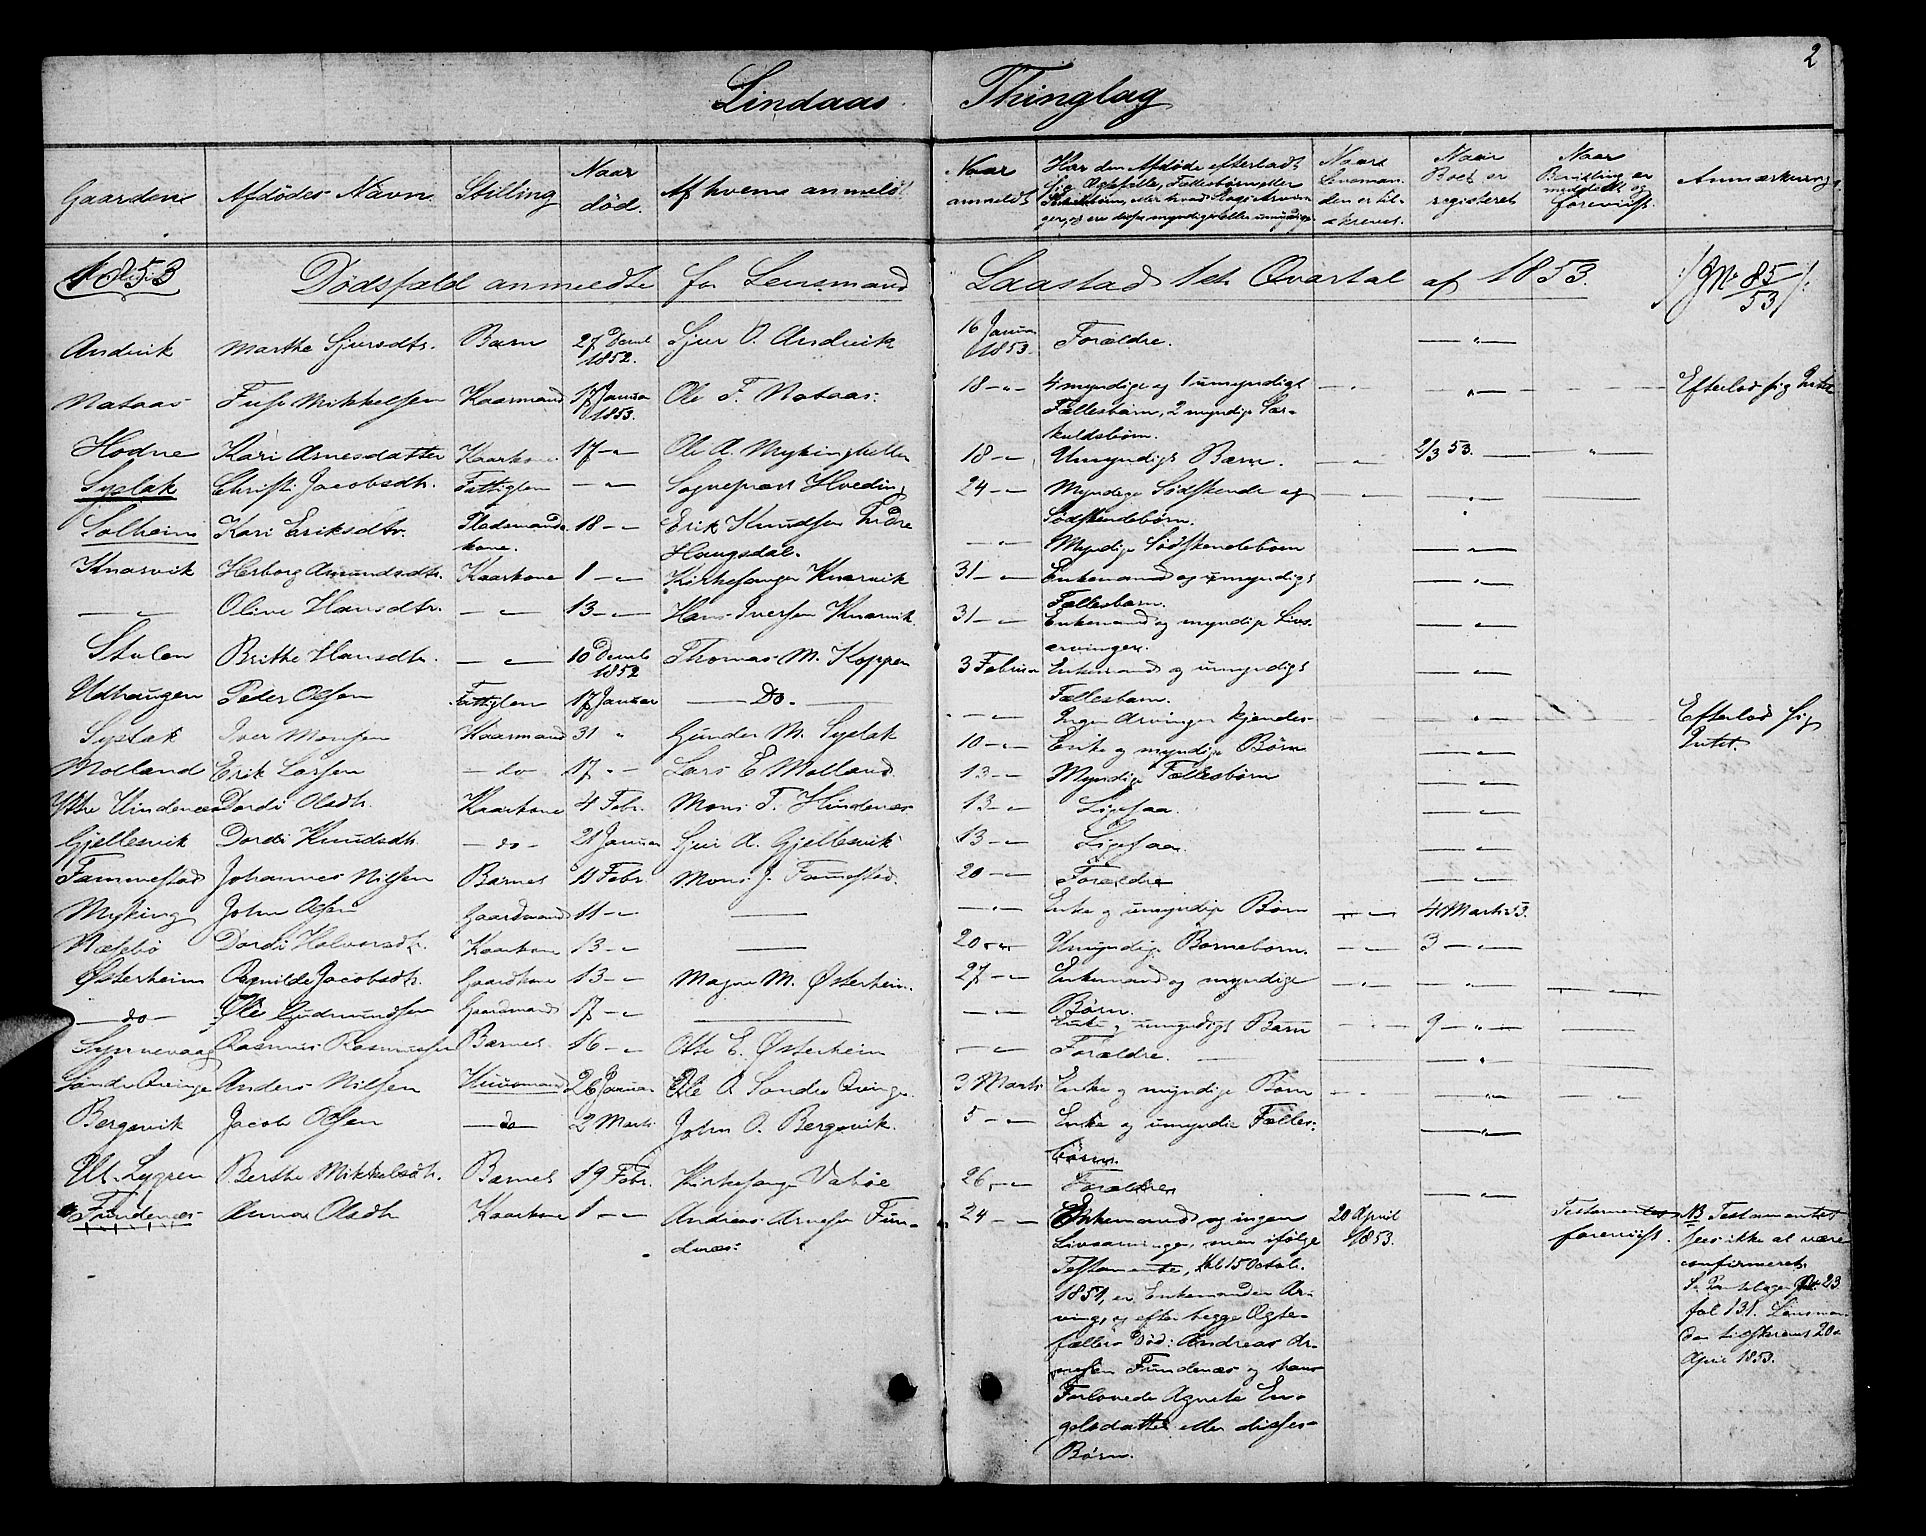 2
Lindaas Thinglag
Gaardens Afdødes Navn Stilling Naar død. Af hvem anmeldt Naar anmeldt Har den Afdøde efterladt sig Ægtefælle, Fællesbørn eller
Særkulsbørn, eller hvad Slags Arvinger, og ere disse myndige eller umyndige Naar Lensmanden er tilskrevet Naar Boet er registeret Naar Bevilling er meddelt og forevist. Anmærkninger
1853 Dødsfald anmeldte for Lensmand Laastad 1ste Qvartal af 1853. /: J No 85/53 :/
Andvik Marthe Sjursdtr. Barn 27 Decbr 1852. Sjur O. Andvik 16 Januar 1853. Forældre. — " —
Nataas Fusse Mikkelsen Kaarmand 17 Januar 1853. Ole F. Nataas. 18 - " - 4 myndige og 1 umyndigt
Fællesbarn, 2 myndige Sær-
kuldsbørn. — " — Efterlod sig Intet
Hodne Kari Arnesdatter Kaarkone 17 - " - Ole A. Mykingheller 18 - " - Umyndigt Barn. — " — 2/3 53. — " —
Syslak Christi Jacobsdtr. Fattiglem — " — Sognepræst Hveding 24 - " - Myndige Sødskende og
Sødskendebørn. — " —
Solheim Kari Eriksdtr. Pladsmands-
kone. 18 - " - Erik Knudsen Indre
Haugsdal. — " — Myndige Sødskendebørn — " —
Knarvik Herborg Amundsdtr. Kaarkone 1 - " - Kirkesanger Knarvik 31 - " - Enkemand og umyndigt
Fællesbarn. — " —
— " — Oline Hansdtr. — " — 13 - " - Hans Iversen Knarvik. 31 - " - Enkemand og myndige Livs-
arvinger. — " —
Stulen Brithe Hansdtr. — " — 10 Decbr 1852 Thomas M. Koppen 3 Februar Enkemand og umyndigt
Fællesbarn. — " —
Udhaugen Peder Olsen Fattiglem 17 Januar — Do. — — " — Ingen Arvinger kjendes - — " — Efterlod sig
Intet.
Syslak Iver Monsen Kaarmand 31 " Gunder M. Syslak 10 - " - Enke og myndige Børn — " —
Molland Erik Larsen - do - 17 " - Lars E. Molland. 13 - " - Myndige Fællesbørn — " —
Ytre Hindenæs Dordi Olsdtr. Kaarkone 4 Febr. Mons T. Hindenæs. 13 - " - Ligesaa. — " —
Gjellesvik Dordi Knudsdtr. - do - 21 Januar Sjur A. Gjellesvik 13 - " - Ligesaa. — " —
Fammestad Johannes Nilsen Barnet 11 Febr. Mons J. Fammestad. 20 - " - Forældre — " —
Myking John Olsen Gaardmand 11 - " - — — " — Enke og umyndige Børn — " — 4 Marts 53.
Næssbø Dordi Halvorsdtr. Kaarkone 13 - " - — 20 - " - Umyndige Børnebørn. — " — 3 - " -
Østerheim Ragnilde Jacobsdtr. Gaardkone 13 - " - Magne M. Østerheim. 27 - " - Enkemand og myndige
Børn. — " — — " — — " —
— do — Ole Gudmundsen Gaardmand 17 - " - — — " — Enke og umyndigt Barn — " — 9 - " -
Synnevaag Rasmus Rasmussen Barnet 16 - " - Otte E. Østerheim — " — Forældre. — " —
Søndre Qvinge Anders Nilsen Huusmand 26 Januar Ole A. Søndre Qvinge. 3 Marts Enke og myndige Børn — " — — " — — " —
Bergsvik Jacob Olsen — do — 2 Marts John O. Bergsvik. 5 - " - Enke og umyndie Fælles-
børn. — " —
Ut. Lygren Berthe Mikkelsdtr. Barnet 19 Febr. Kirkesanger Vabøe 26 - " - Forældre — " —
Fundenæs Anna Olsdtr Kaarkone 1 - " - Andreas Arnesen Fun-
denæs. 24 - " - Enkemand og ingen
Livsarvinger, men ifølge
Testamente, dat 15 Octob.
1851, er Enkemanden Ar-
ving, og efter begge Ægte-
fællers Død: Andreas Ar-
nesen Fundenæs og hans
Forlovede Agnete En-
gelsdatter eller disses
Børn. 20 April 1853. Testamentet forevist. NB Testamentet
sees ikke at være
confirmeret.
Se Pantebogen No 23
fol 131. Lensman-
den tilskrevet 20de
April 1853.